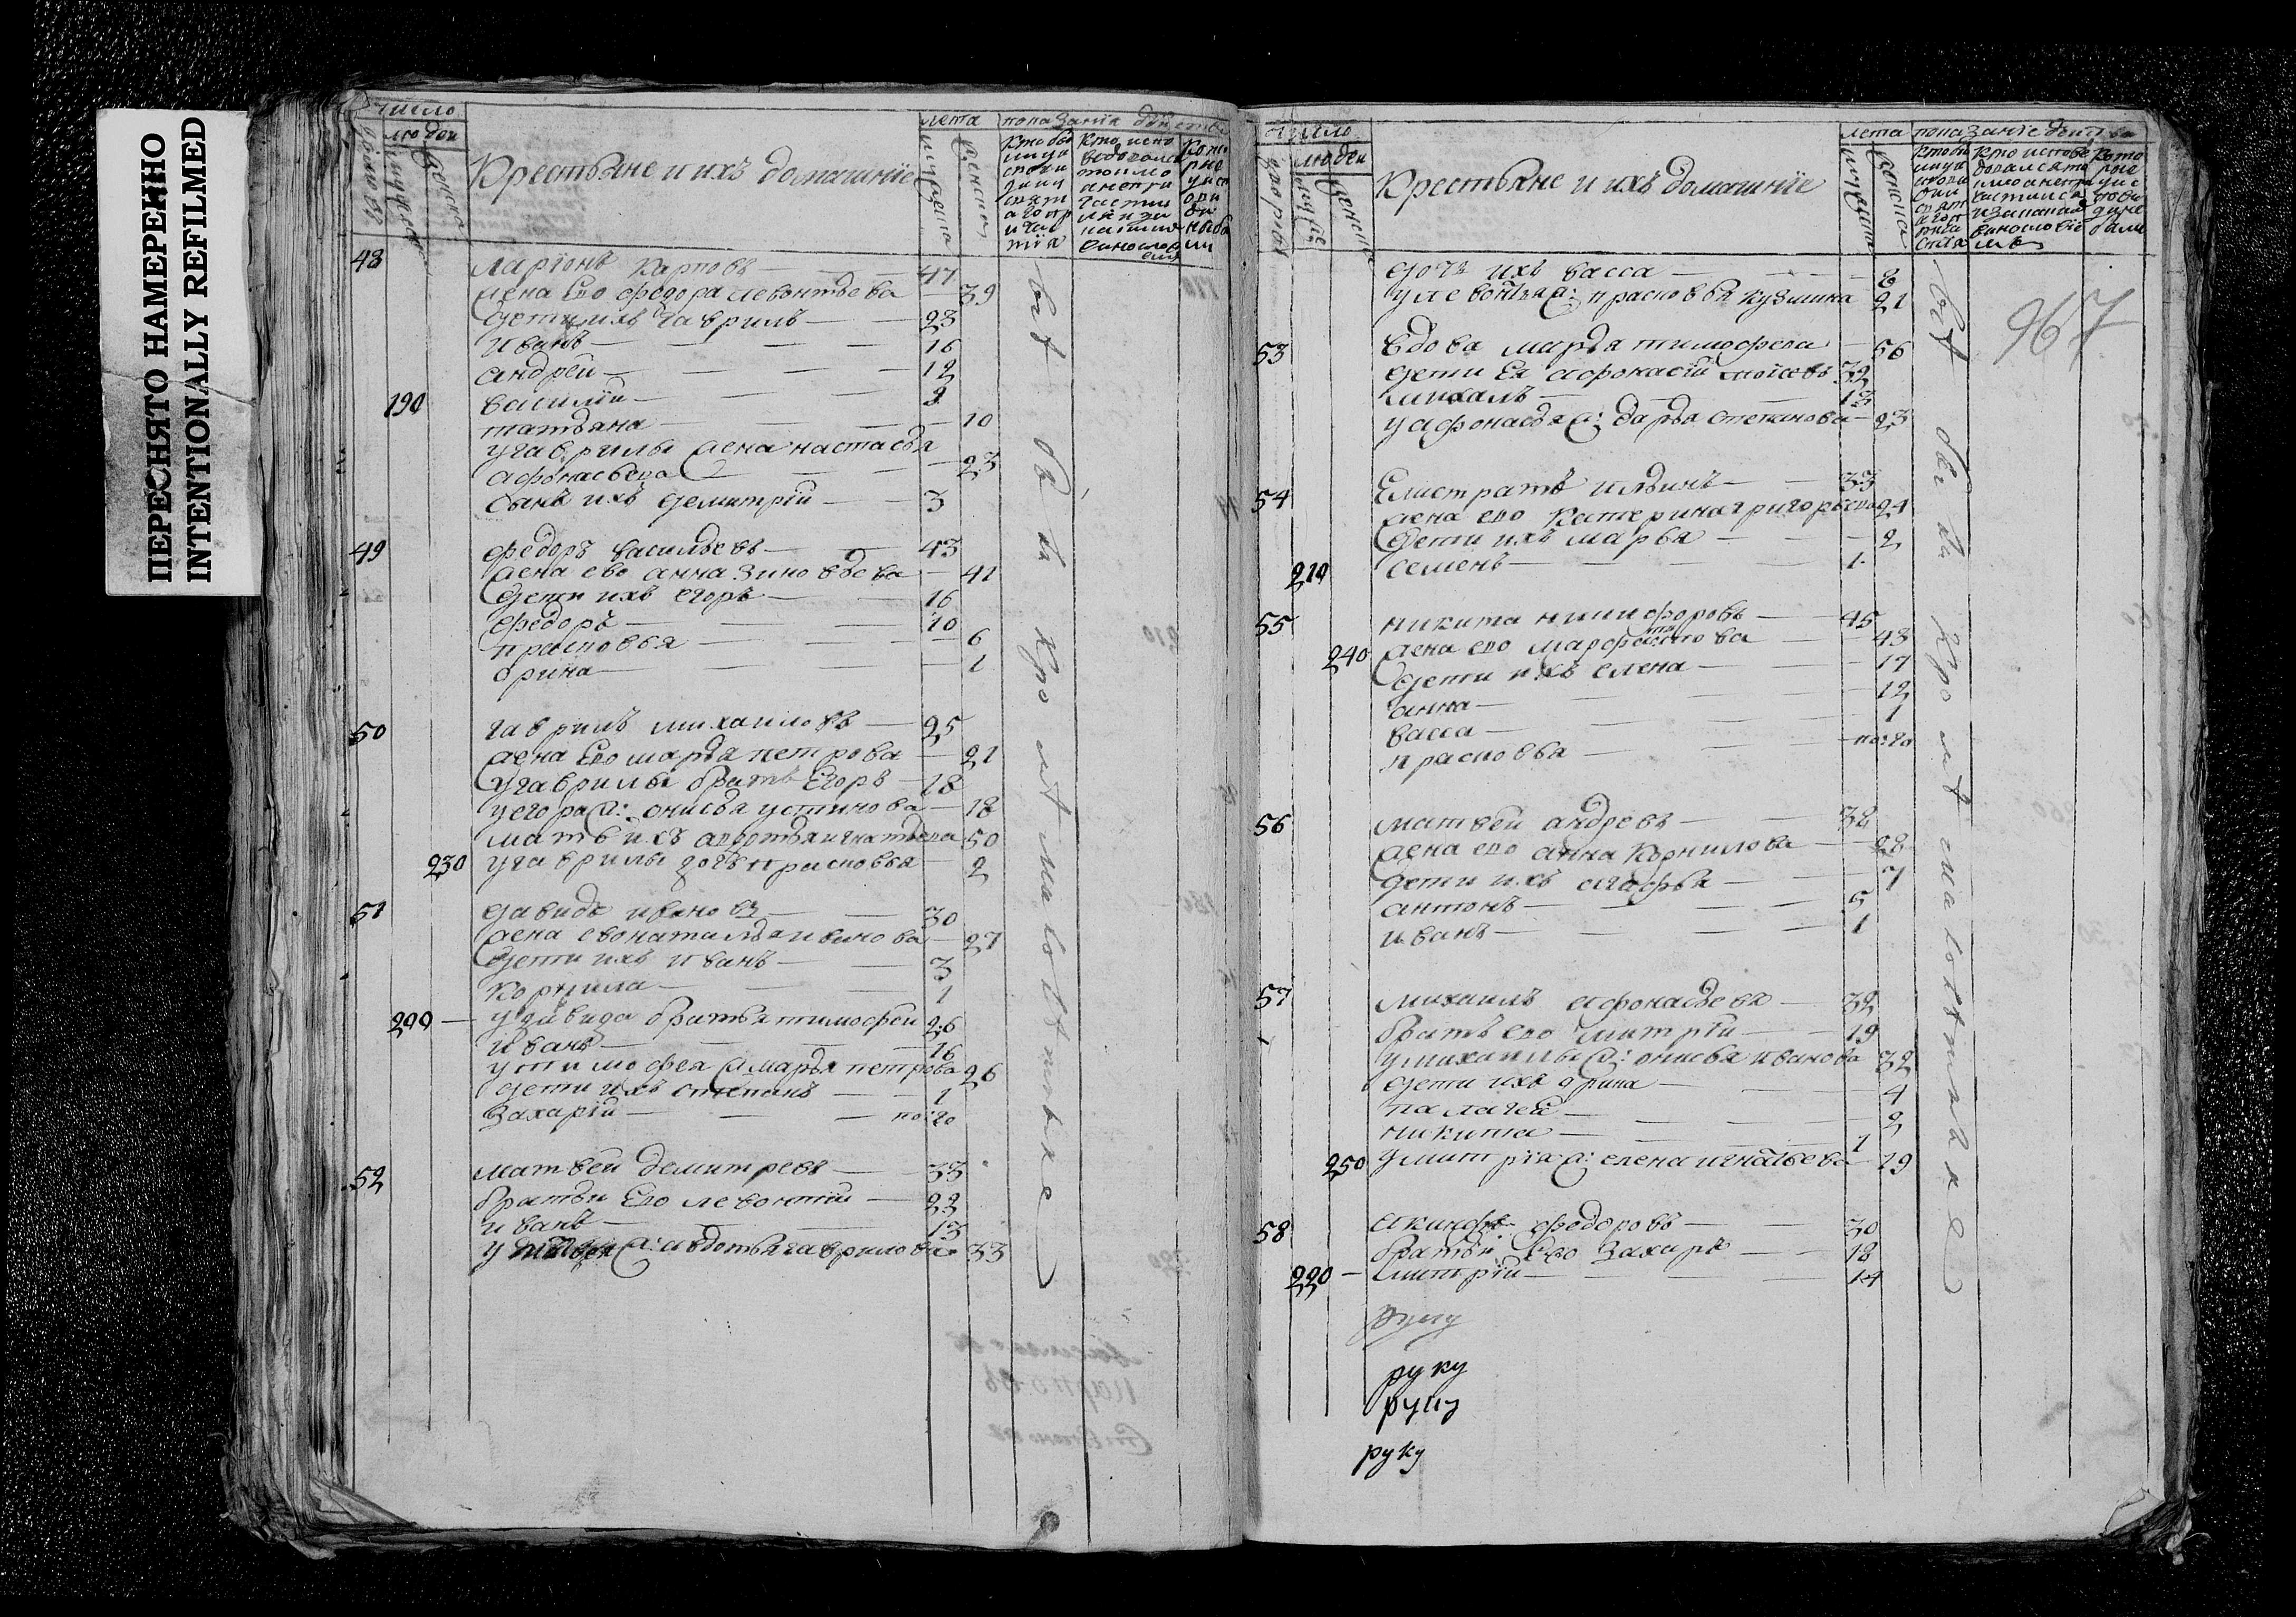 ПЕРЕСНЯТО НАМЕРЕННО
INTENTIONALLY REFILMED
число
людеи
Крестьяне и ихъ домашнїе
лета
показанїя
48 Ларïонъ Карповъ 47
жена Ево федора левонтьева 39
дети ихъ Гаврилъ 23
Иванъ 16
андрей 12
190 василïи 3
татьяна 10
у гаврилы жена настасья
афонасьева 23
сынъ ихъ демитрïй 3
49 федоръ васильевъ 43
жена ево анна зиновьева 41
дети ихъ егоръ 16
федоръ 10
прасковья 6
орина 1
50 гаврилъ михаиловъ 25
жена Ево марья петрова 21
у гаврилы братъ Егоръ 18
у егора ж: онисья устинова 18
мать ихъ авдотья игнатьева 50
230 у гаврилы дочь прасковья 2
51 давидъ ивановъ 30
жена ево наталья иванова 27
дети ихъ иванъ 3
корнила 1
200 у давида братья тимофей 26
иванъ 16
у тимофея ж марья петрова 26
дети ихъ степанъ 1
захарïй по:го
52 матвей демитревъ 33
братьи Ево левонтïи 22
иванъ 13
у ж: авдотья гаврилова 33
всѣ были кромѣ малолѣтныхъ
число
людеи
Крестьяне и ихъ домашнïе
лета
показанïе
967
дочь ихъ васса 8
у левонтья ж: прасковья кузмина 21
53 вдова марья тимофева 56
дети Ея афонасïй моисевъ 32
михалъ 13
у афонасья ж: дарья степанова 23
54 Елистратъ ильинъ 33
жена ево катерина григорьева 24
дети ихъ марья 2
210 семенъ 1
55 никита никифоровъ 45
240 жена ево марфа 43
дети ихъ елена 17
анна 12
васса 1
прасковья по:го
56 матвей андревъ 38
жена ево анна корнилова 28
дети ихъ агафья 7
антонъ 5
иванъ 1
57 михаилъ афонасьевъ 32
братъ ево дмитрïй 19
у михаилы ж: онисья иванова 32
дети ихъ орина 4
палагея 2
никита 1
250 у митрïя ж: елена игнатьева 19
58 акинфъ федоровъ 30
братьи Ево захаръ 18
220 митрïй 14
всѣ были кромѣ малолѣтныхъ
руку
руку
руку
руку